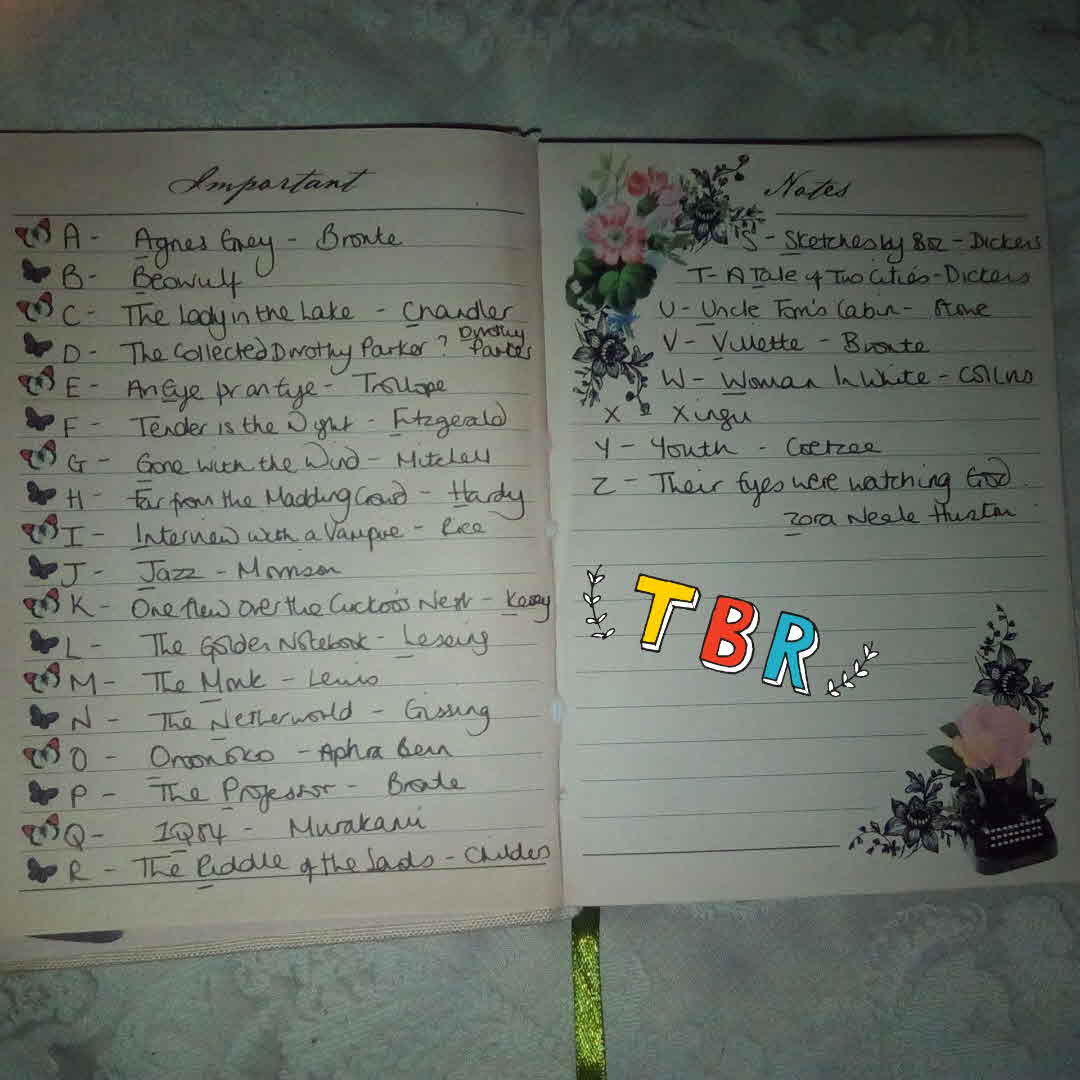 Important
A - Agnes Grey - Bronte
B - Beowulf
C - The Lady in the Lake - Chandler
D - The Collected Dorothy Parker ? Dorothy Parker
E - An Eye for an Eye - Trollope
F - Tender is the Night - Fitzgerald
G - Gone with the Wind - Mitchell
H - Far from the Madding Crowd - Hardy
I - Interview with a Vampire - Rice
J - Jazz - Morrison
K - One flew over the Cuckoo's Nest - Kesey
L - The Golden Notebook - Lessing
M - The Monk - Lewis
N - The Netherworld - Gissing
O - Oroonoko - Aphra Behn
P - The Professor - Bronte
Q - 1Q84 - Murakami
R - The Riddle of the Sands - Childers
Notes
S - Sketches by Boz - Dickens
T - A Tale of Two Cities - Dickens
U - Uncle Tom's Cabin - Stowe
V - Villette - Bronte
W - Woman In White - Collins
X Xingu
Y - Youth - Coetzee
Z - Their Eyes were watching God.
Zora Neale Hurston
TBR